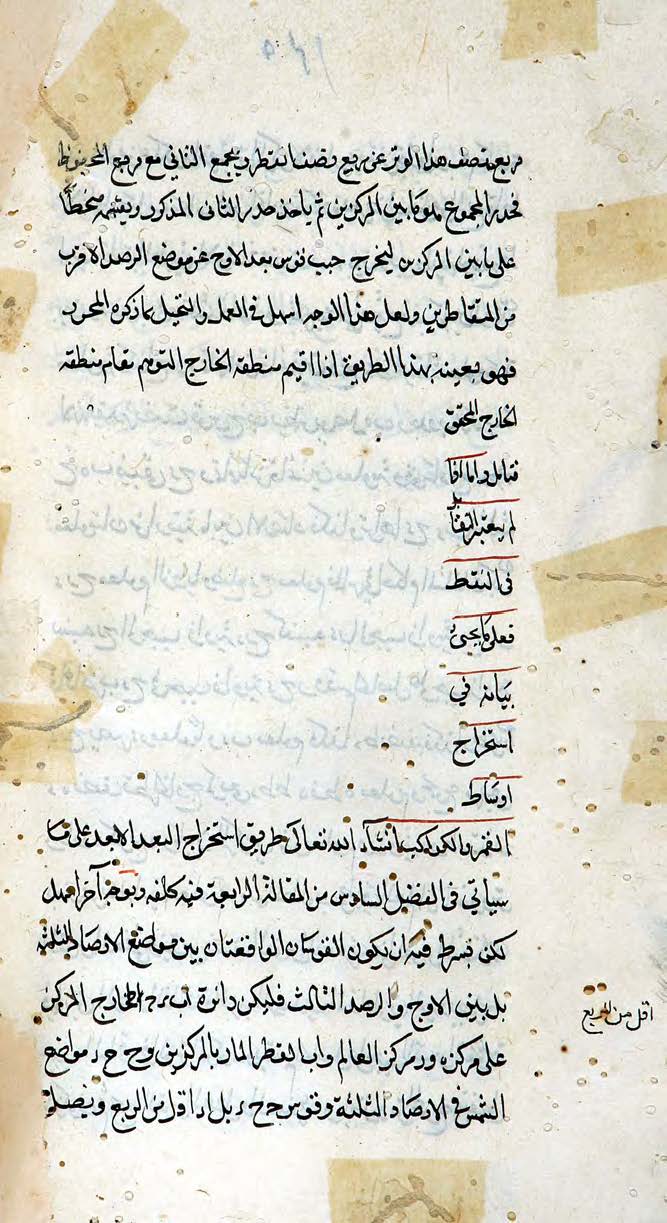 مربع منتصف هذا الوتر عن مربع نصف القطر ويجمع الثاني مع مربع المحفوظ
فجذر المجموع هو ما بين المركزين ثم يأخذ جذر الثاني المذكور ويقسمه منحطا
على ما بين المركزين ليخرج جيب قوس بعد الاوج عن موضع الرصد الاقرب
من المتقاطرين ولعل هذا الوجه اسهل في العمل والتخيل مما ذكره المحرر
فهو بعينه بهذا الطريق اذا اقيم منطقة الخارج التوهم مقام منطقة
الخارج المحقق
فتامل واما اذا
لم يعتبر التقابل
في النقط
فعلى ما يجئ
بيانه في
استخراج
اوساط
القمر والكواكب انشآء الله تعالى طريق استخراج البعد الابعد على ما
سياتي في الفصل السادس من المقالة الرابعة فيه كلفه وبوجه آخر اسهل
لكن بشرط فيه ان يكون القوسان الواقعتان بين مواضع الارصاد الثلثة
بل بين الاوج والرصد الثالث فليكن دائرة اب ج الخارج المركز
على مركزه ور مركز العالم واب القطر المار بالمركزين و ح ح ء مواضع
الشمس في الارصاد الثلثة وقوس ح ح ء بل اء اقل من الربع ونصل
اقل من الربع